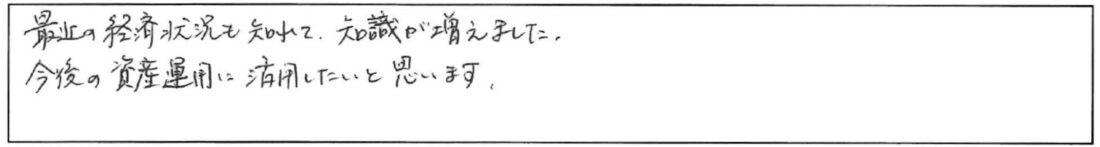 最近の経済状況も知れて、知識が増えました。
今後の資産運用に活用したいと思います。